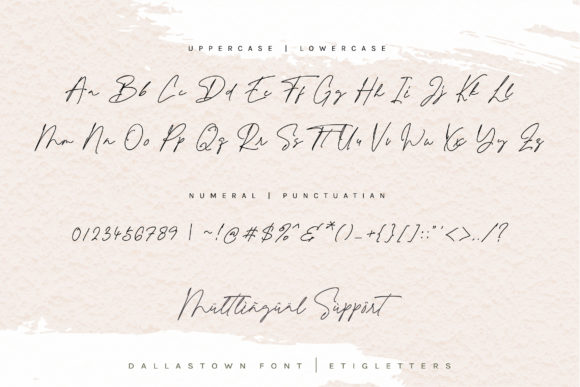 UPPERCASE | LOWERCASE
Aa Bb Cc Dd Ee Ff Gg Hh Ii Jj Kk Ll
Mm Nn Oo Pp Qq Rr Ss Tt Uu Vv Ww Xx Yy Zz
NUMERAL | PUNCTUATIAN
0123456789 | ~!@#$%^&*()_+{}[]:;"'<>,./?
Mültlïngüäl Süppört
DALLASTOWN FONT | ETIGLETTERS